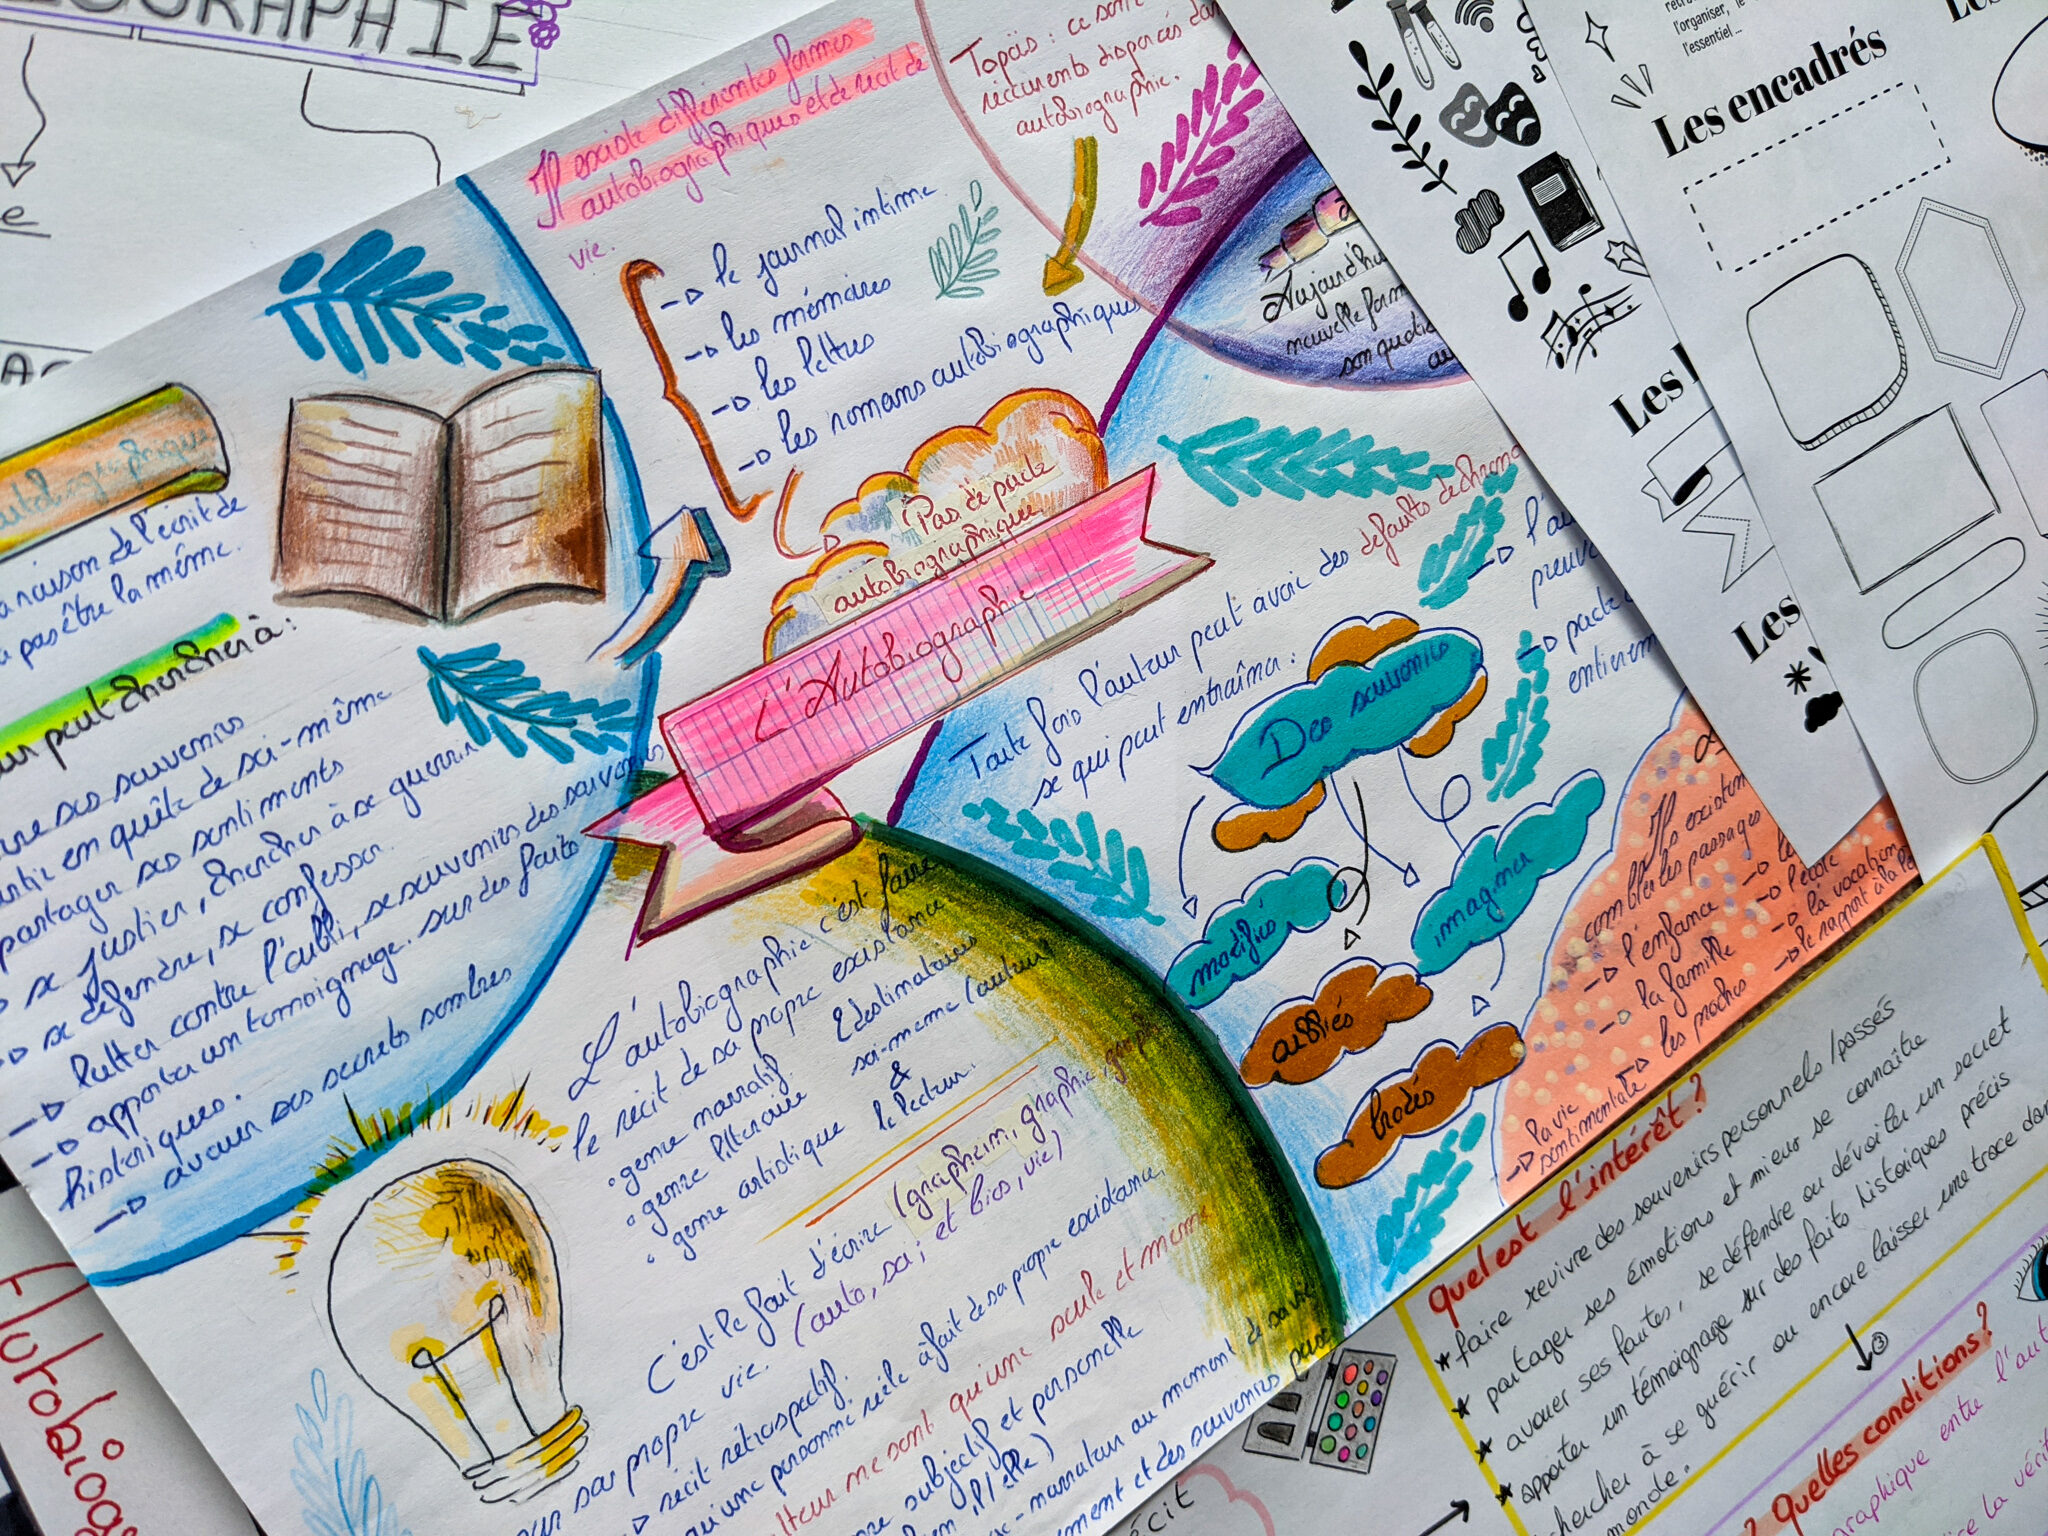 Il existe différentes formes
autobiographiques et de récit de
vie.
-> le journal intime
-> les mémoires
-> les lettres
-> les romans autobiographiques
Topoïs : ce sont
récurrents dispercés dans
autobiographie.
Aujourd'hui
nouvelle form
son quotid
au
(Pas de pacte
autobiographique)
L'Autobiographie
autobiographique
raison de l'écrit de
pas être la même.
ur peut chercher à :
ses souvenirs
en quête de soi-même
partager ses sentiments
se justier, chercher à se guerrir
-> se défendre, se confesser.
lutter contre l'oubli, se souvenirs des souvenirs
-> apporter un temoignage sur des faits
historiques.
-> avouer ses secrets sombres
Toute fois l'auteur peut avoir des défauts de chrono
se qui peut entraîner :
Des souvenirs
modifiés
imaginer
oubliés
brodés
l'au
preuve
-> pacte
entierem
Ils existent
combler les passages
-> l'enfance
-> la famille
-> les proches
-> la vie
sentimentale
-> l'école
-> la vocation
-> le rapport à la
L'autobiographie c'est faire
le récit de sa propre existance
• genre narratif.
• genre litteraire
• genre artistique
2 destinataires
soi-meme (auteur)
&
le lecteur.
C'est le fait d'écrire (graphein, graphie
vie. (auto, soi ; et bios, vie)
sur sa propre vie.
-> récit rétrospectif.
qu'une personne réele à fait de sa propre existance.
ne sont qu'une seule et meme
subjectif et personnelle
il/elle)
narrateur au moment de sa vie
ment et des souvenirs passé
Quel est l'intérêt ?
★ faire revivre des souvenirs personnels/passés
★ partager ses émotions et mieux se connaître
★ avouer ses fautes, se défendre ou dévoiler un secret
★ apporter un témoignage sur des faits histoiques précis
chercher à se guérir ou encore laisser une trace dans
monde.
③
Quelles conditions ?
graphique entre l'aut
la vérit
Autobiog
OGRAPHIE
écit
l'organiser, le
l'essentiel ...
Les encadrés
Les
Les